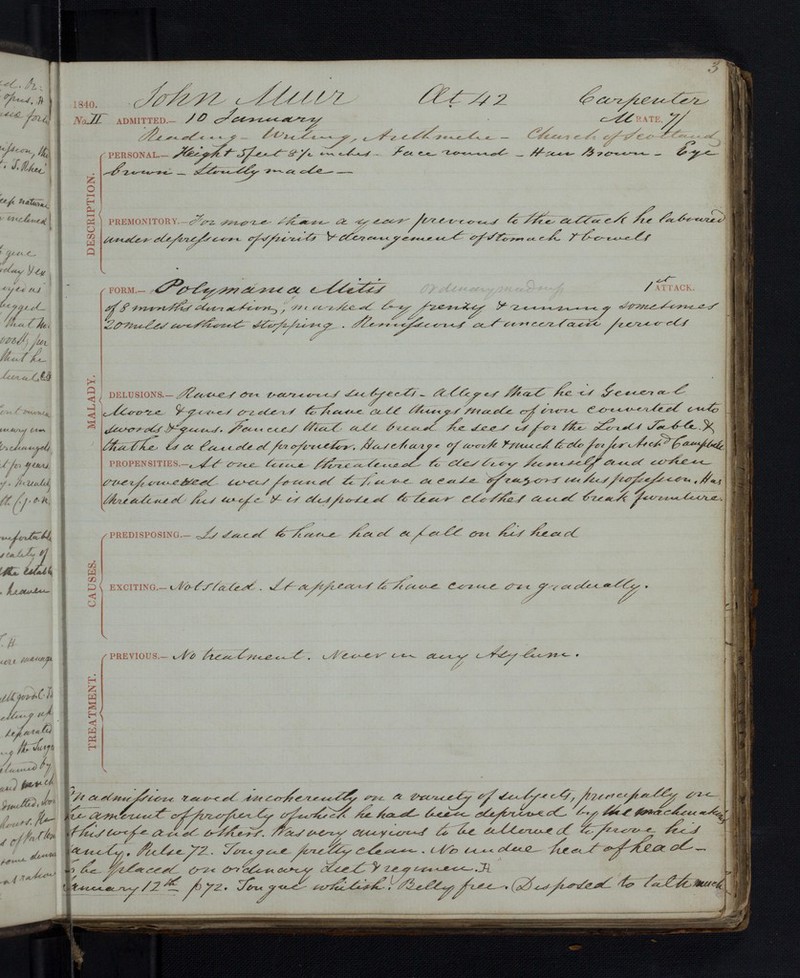 3
1840. John Muir Æt 42 Carpenter
No. II ADMITTED.— 10 January M RATE. 7/
Reading - Writing, Arithmetic - Church of Scotland
DESCRIPTION.
PERSONAL.— Height 5feet 8½ inches - Face round - Hair Brown - Eye
brown - Stoutly made —
PREMONITORY.— For more than a year previous to the attack he laboured
under depression of spirits & derangement of Stomach & bowels
MALADY.
FORM.— Polymania Mitis 1st ATTACK.
of 8 months duration, marked by frenzy & running sometimes
20 miles without stopping. Remissions at uncertain periods
DELUSIONS.— Raves on various subjects - Alleges that he is General
Moore & gives orders to have all things made of iron converted into
swords & guns. Fancies that all bread he sees is for the Lords Table &
that he is a landed proprietor. Has charge of work & much to do for Sir Archd Campbell
PROPENSITIES.— At one time threatened to destroy himself and when
overpowered was found to have a case of razors in his possession. Has
threatened his wife & is disposed to tear clothes and break furniture.
CAUSES.
PREDISPOSING.— Is said to have had a fall on his head
EXCITING.— Not Stated. It appears to have come on gradually.
TREATMENT.
PREVIOUS.— No treatment. Never in any Asylum.
On admission raved incoherently on a variety of subjects, principally on
the amount of property of which he had been deprived by the machinations
of his wife and others. Was very anxious to be allowed to prove his
sanity. Pulse 72. Tongue pretty clean. No undue heat of head —
To be placed on ordinary diet & regimen.
January 12th p72. Tongue whitish. Belly free. Disposed to talk much